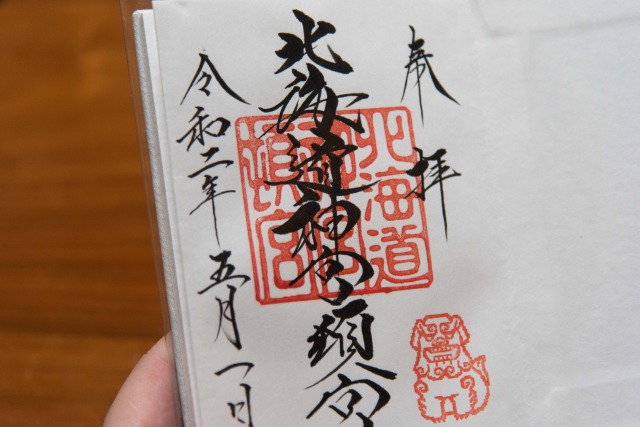 奉拝
北海道神宮頓宮
令和二年五月一日
北海道
神宮
頓宮